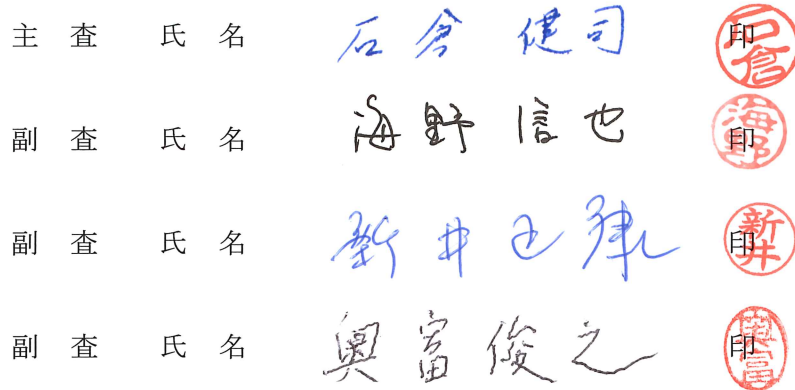 主 査 氏 名 石倉 健司 印 石倉
副 査 氏 名 海野 信也 印 海野
副 査 氏 名 新井 正 印 新井
副 査 氏 名 奥富 俊之 印 奥富